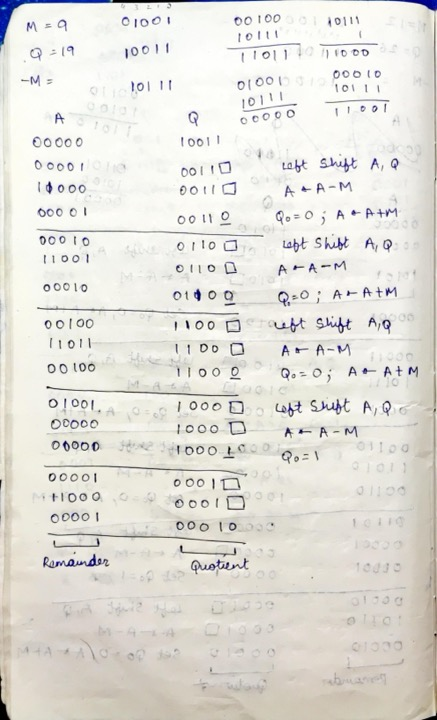 M = 9 01001 00100 10111
Q = 19 10011 10111 1
11011 11000
-M = 10111 01001 00010
10111 10111
00000 11001
A Q
00000 10011
00001 0011□ Left Shift A, Q
11000 0011□ A ← A-M
00001 00110 Q0=0 ; A ← A+M
00010 0110□ Left Shift A, Q
11001 0110□ A ← A-M
00010 01100 Q0=0 ; A ← A+M
00100 1100□ Left Shift A,Q
11011 1100□ A ← A-M
00100 11000 Q0=0; A ← A+M
01001 1000□ Left Shift A, Q
00000 1000□ A ← A-M
00000 10001 Q0=1
00001 0001□
11000 0001□
00001 00010
Remainder Quotient